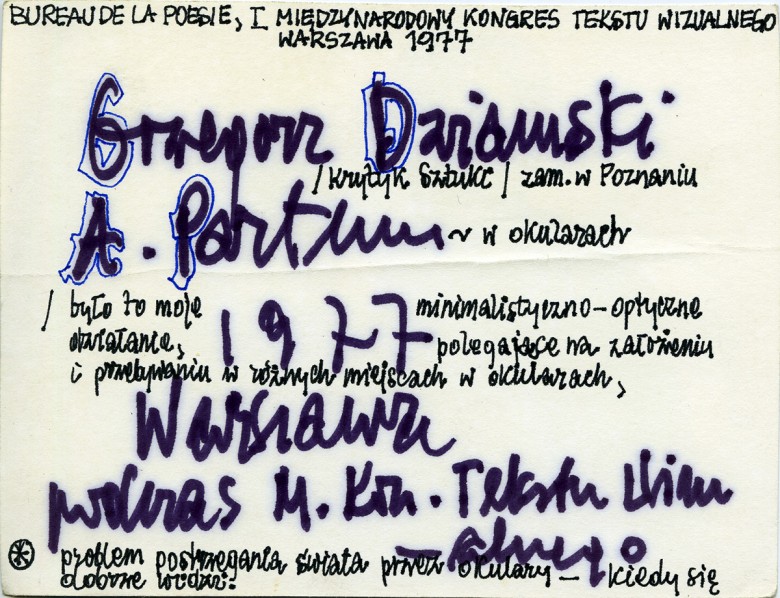 BUREAU DE LA POESIE, I MIĘDZYNARODOWY KONGRES TEKSTU WIZUALNEGO
WARSZAWA 1977
Grzegorz Dziamski
/ krytyk sztuki / zam. w Poznaniu
A. Partum ~ w okularach
/ było to moje 1977 minimalistyczno-optyczne
działanie, polegające na założeniu
i przebywaniu w różnych miejscach w okularach,
Warszawa
podczas M. Kon. Tekstu Wizu
-alnego
problem postrzegania świata przez okulary — kiedy się
dobrze widzi: